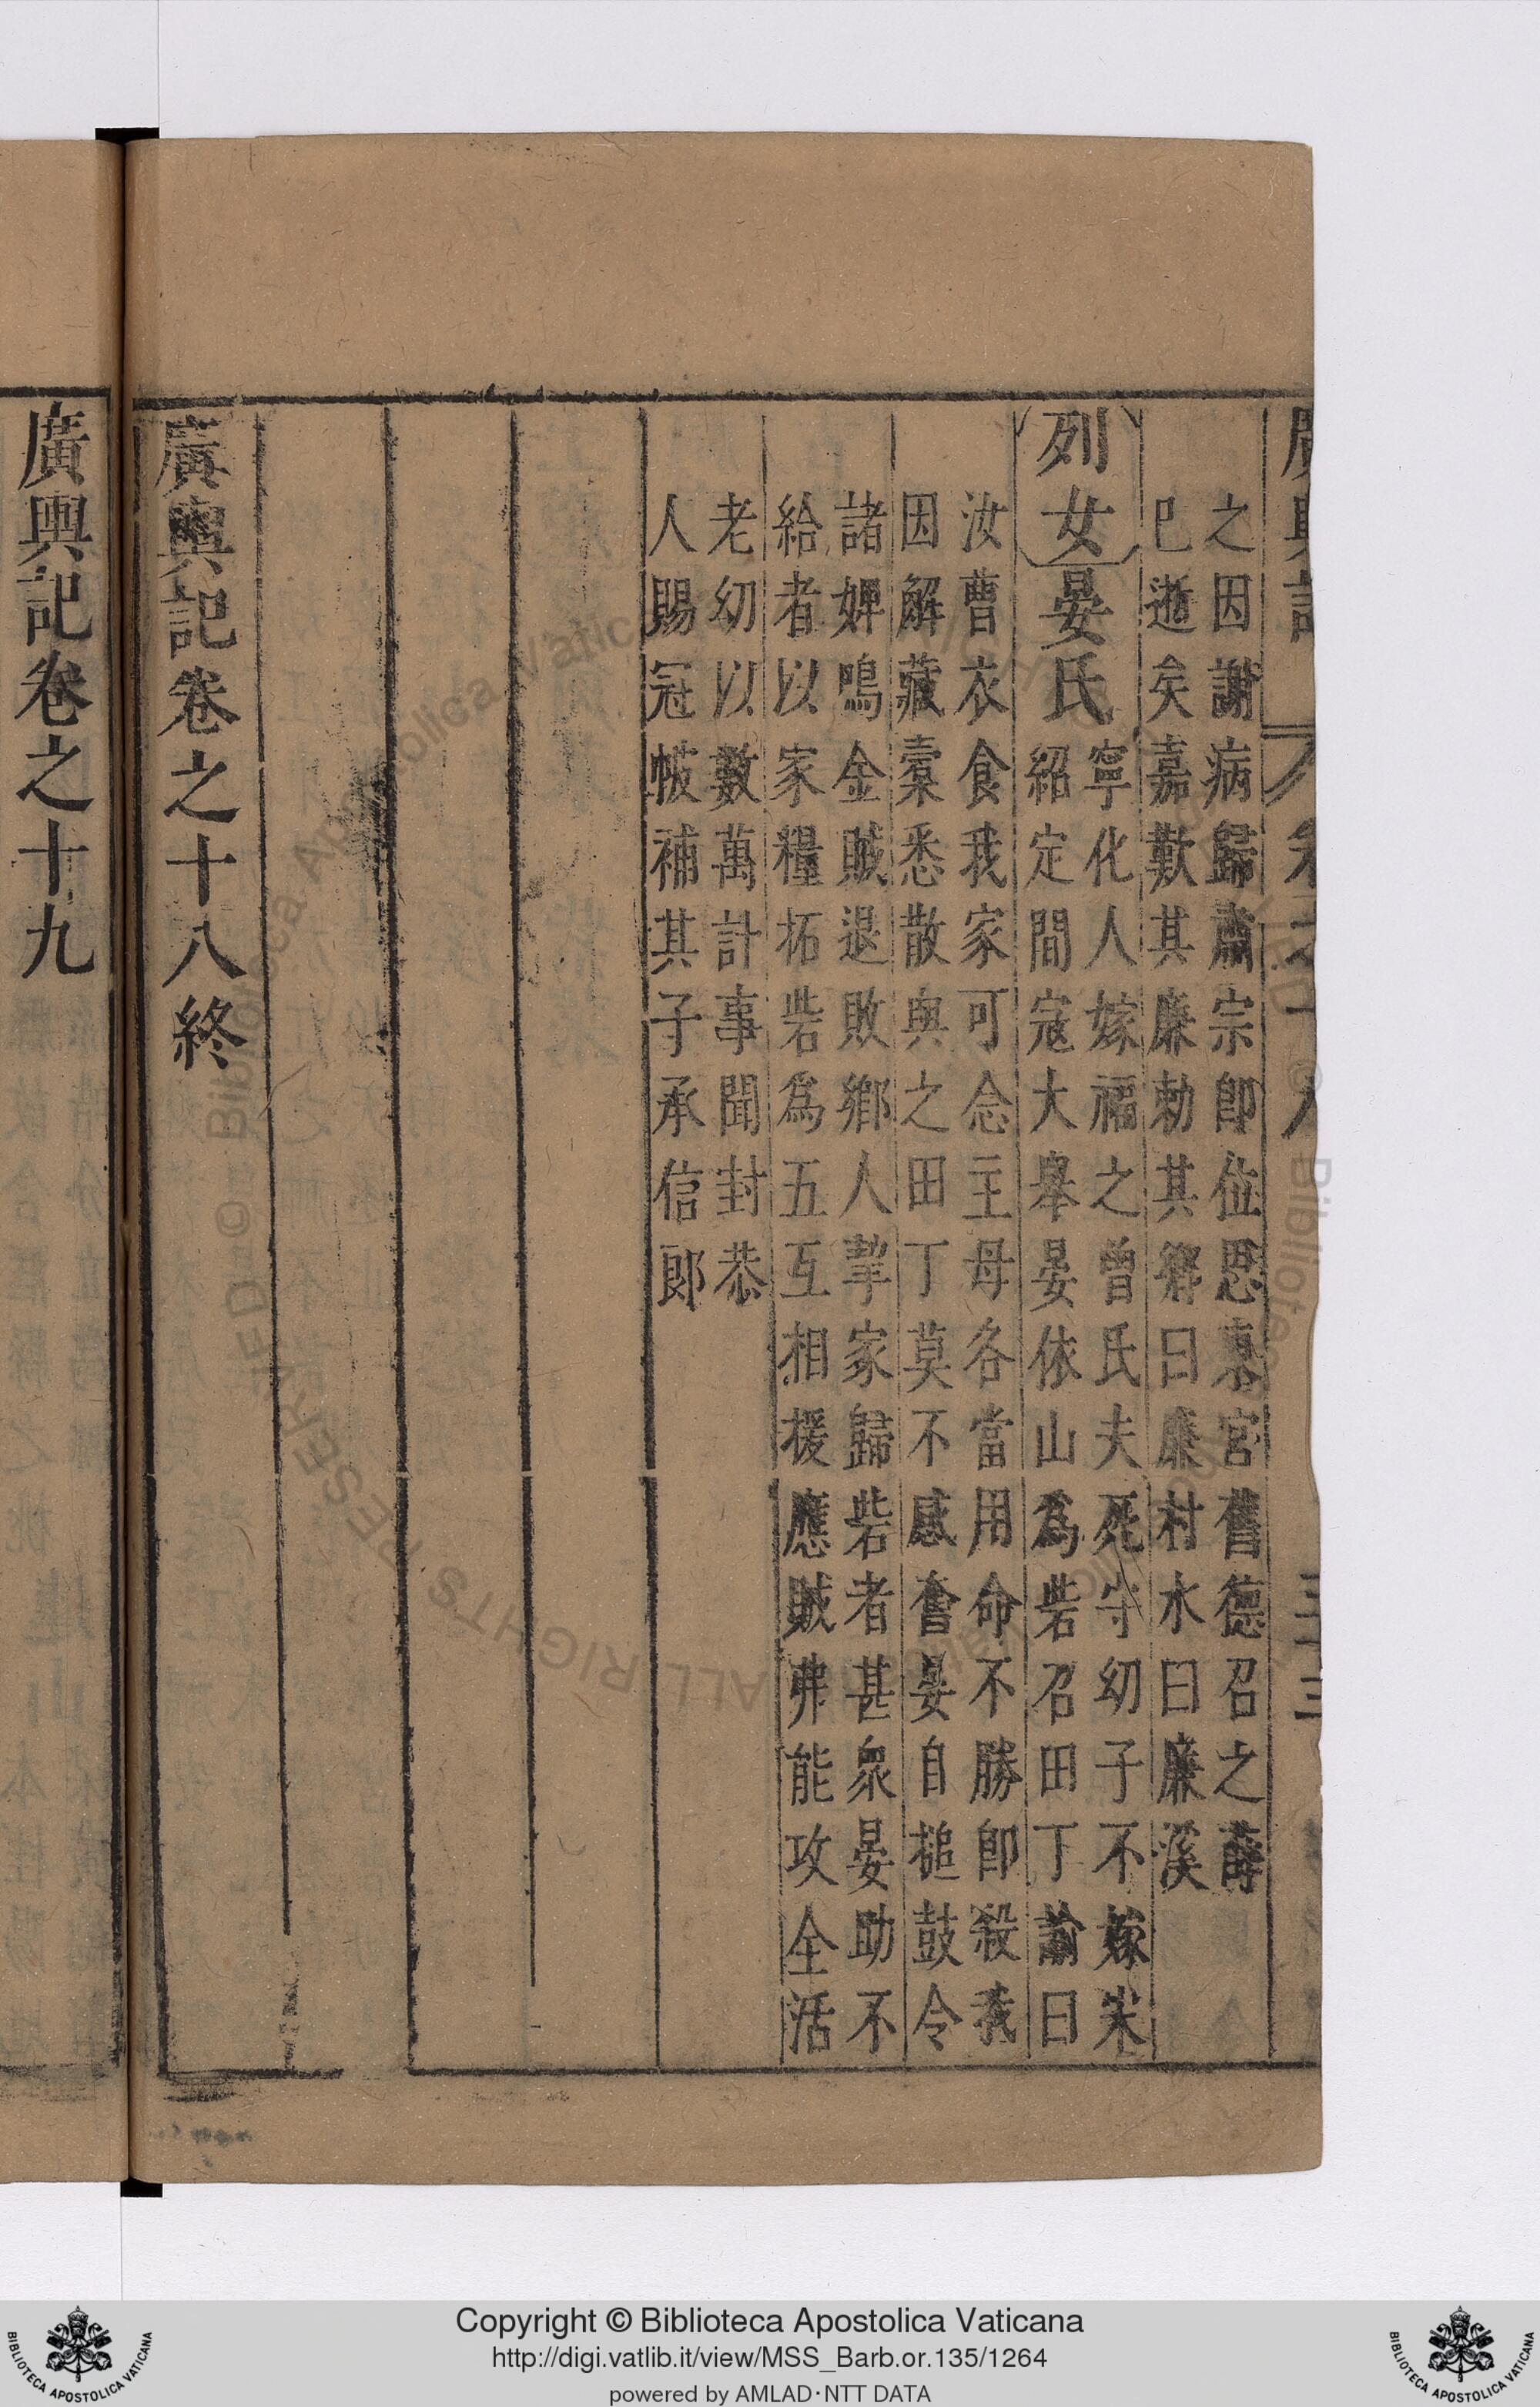 廣輿記
卷之十八
三十三
之因謝病歸肅宗卽位思慕宮舊德召之薛
已逝矣嘉歎其廉勅其鄉曰廉村水曰廉溪
列女
晏氏
寧化人嫁福之曾氏夫死守幼子不嫁宋
紹定間寇大舉晏依山爲砦召田丁諭曰
汝曹衣食我家可念主母各當用命不勝卽殺我
因解藏橐悉散與之田丁莫不感奮晏自槌鼓令
諸婢鳴金賊退敗鄉人挈家歸砦者甚衆晏助不
給者以家糧拓砦爲五互相援應賊弗能攻全活
老幼以數萬計事聞封恭
人賜冠帔補其子承信郎
廣輿記卷之十八終
廣輿記卷之十九
Copyright © Biblioteca Apostolica Vaticana
http://digi.vatlib.it/view/MSS_Barb.or.135/1264
powered by AMLAD·NTT DATA
BIBLIOTECA APOSTOLICA VATICANA
BIBLIOTECA APOSTOLICA VATICANA